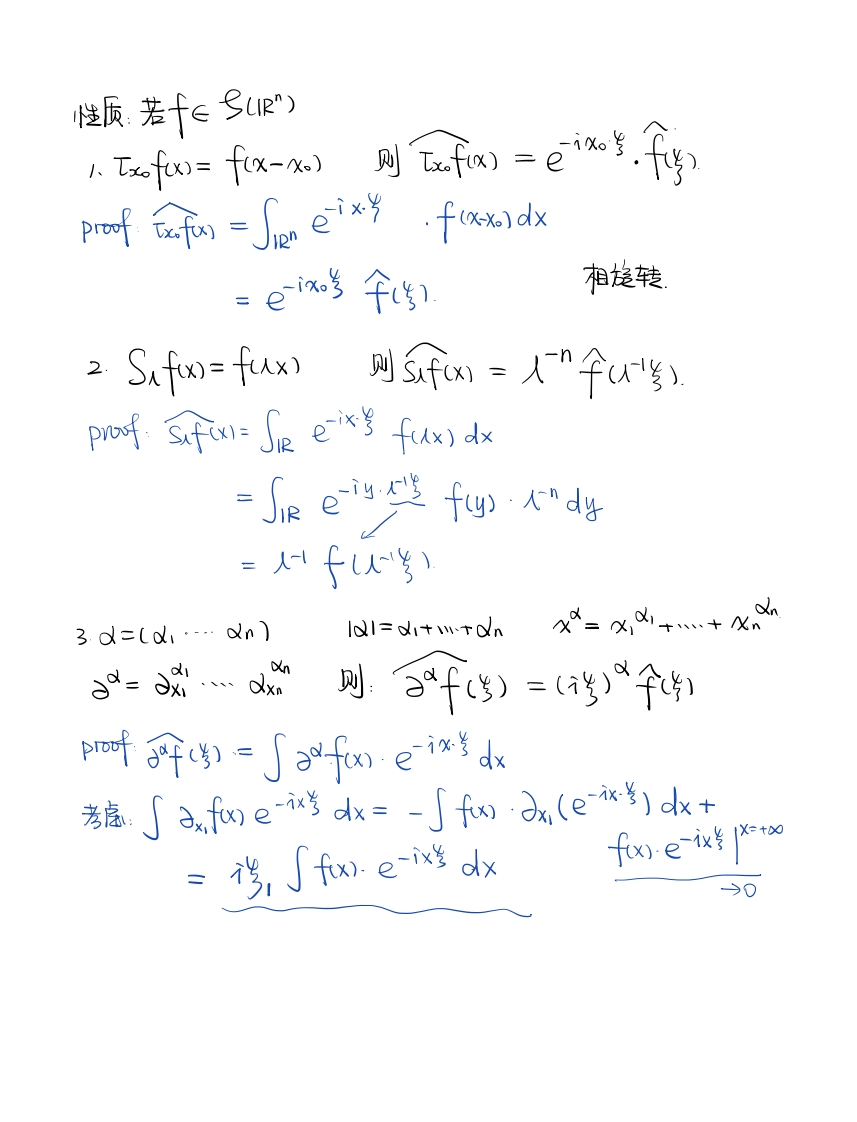 性质: 若 f ∈ 𝒮(ℝⁿ)
1. τ_{x₀}f(x) = f(x-x₀) 则 \widehat{τ_{x₀}f(x)} = e^{-ix₀·ξ} · \hat{f}(ξ).
proof: \widehat{τ_{x₀}f(x)} = ∫_{ℝⁿ} e^{-ix·ξ} · f(x-x₀) dx
= e^{-ix₀ξ} \hat{f}(ξ). 相旋转.
2. S_λ f(x) = f(λx) 则 \widehat{S_λ f(x)} = λ^{-n} \hat{f}(λ^{-1}ξ).
proof: \widehat{S_λ f(x)} = ∫_ℝ e^{-ix·ξ} f(λx) dx
= ∫_ℝ e^{-iy·λ^{-1}ξ} f(y) · λ^{-n} dy
= λ^{-1} f(λ^{-1}ξ)
3. α = (α₁ ···· αₙ) |α| = α₁+···+αₙ x^α = x₁^{α₁} + ···· + xₙ^{αₙ}
∂^α = ∂_{x₁}^{α₁} ···· ∂_{xₙ}^{αₙ} 则: \widehat{∂^α f(ξ)} = (iξ)^α \hat{f}(ξ)
proof: \widehat{∂^α f}(ξ) = ∫ ∂^α f(x) · e^{-ix·ξ} dx
考虑: ∫ ∂_{x₁} f(x) e^{-ixξ} dx = - ∫ f(x) · ∂_{x₁}(e^{-ix·ξ}) dx +
f(x) · e^{-ixξ} |^{x=+∞}
→0
= iξ₁ ∫ f(x) · e^{-ixξ} dx